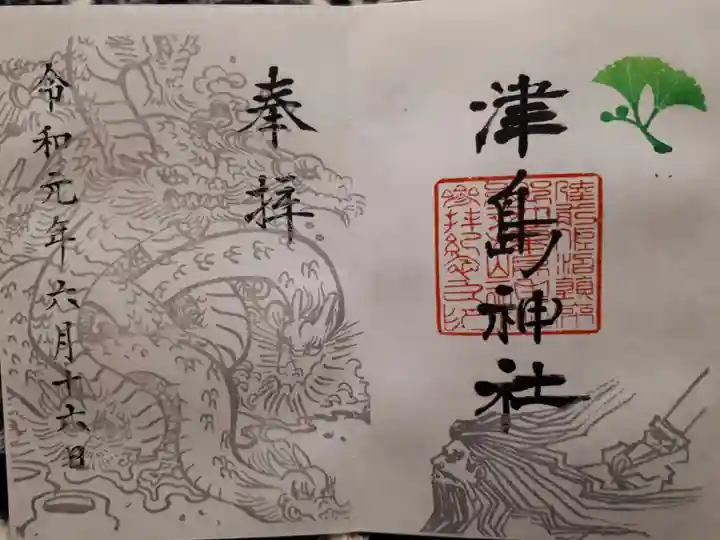 津島神社
奉拝
令和元年六月十六日